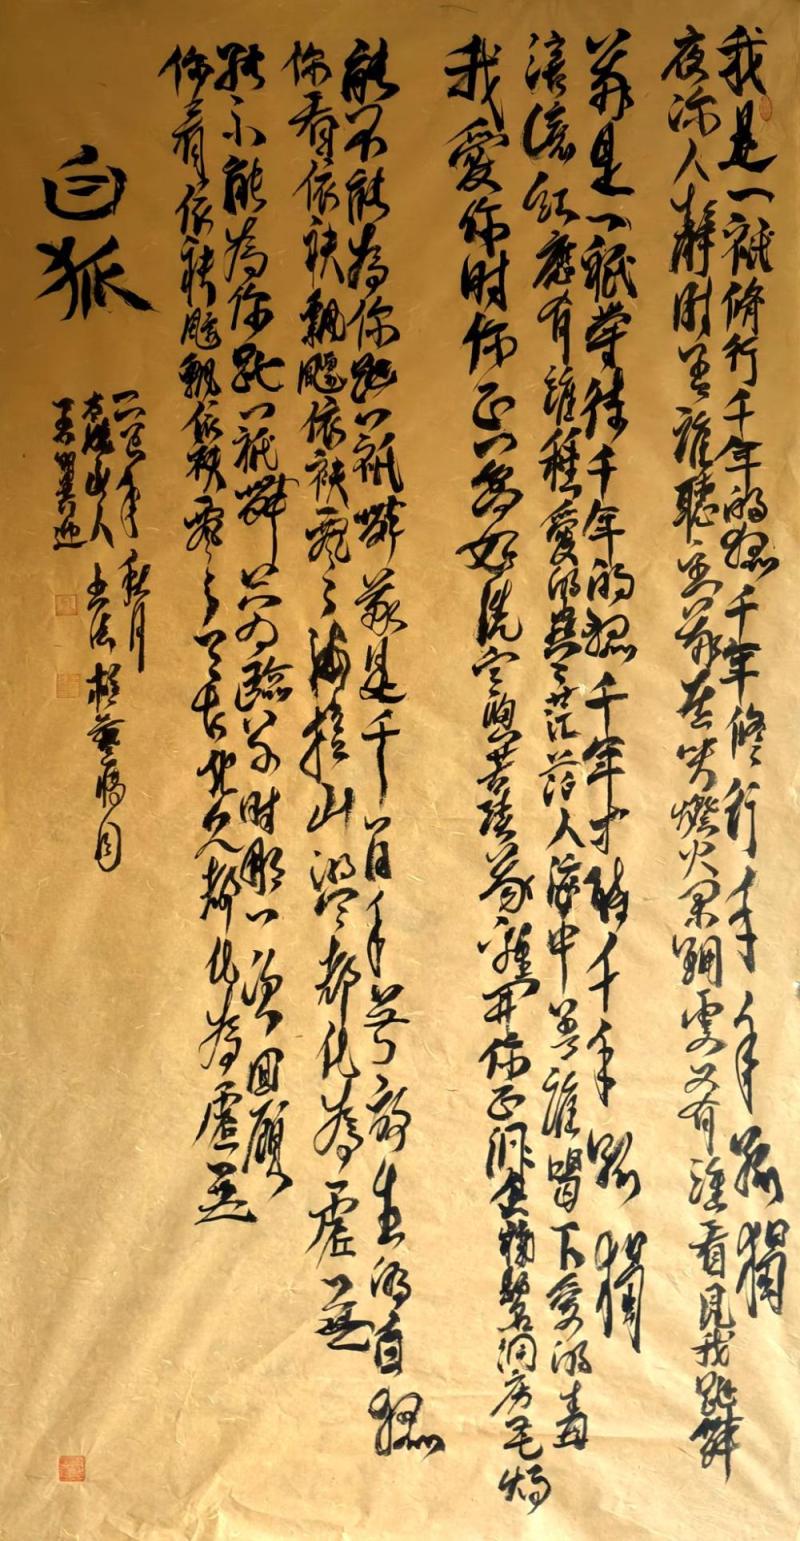 我是一祇脩行千年的狐千年修行千年孤獨
夜深人靜时是誰聽見我在哭燈火闌珊處又有誰看見我跳舞
我是一祇等待千年的狐千年等待千年孤獨
滾滾紅塵有誰種愛的蠱茫茫人海中是誰喝下愛的毒
我愛你时你正一貧如洗寒窗苦讀我離開你正金榜題名洞房花燭
能不能為你跳一祇舞我是千百年前放生的白狐
你看依袂飄飄依袂飄飄海誓山盟都化為虛無
能不能為你跳一祇舞只為臨別时那一次回顧
你看依袂飄飄依袂飄飄天長地久都化為虛無
白狐
年秋月
山人書法